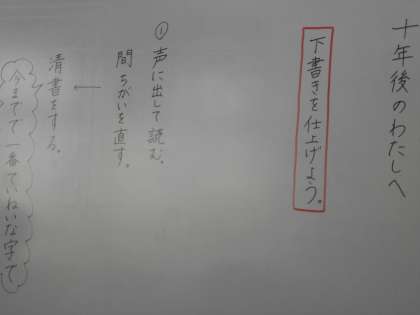 十年後のわたしへ
下書きを仕上げよう。
① 声に出して読む。
間ちがいを直す。
清書をする。
今までで一番ていねいな字で